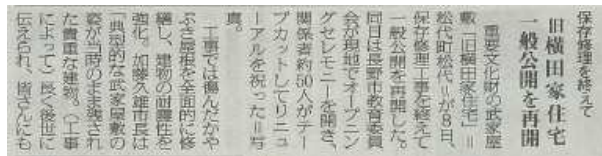 保存修理を終えて
旧横田家住宅
一般公開を再開
重要文化財の武家屋
敷「旧横田家住宅」＝
松代町松代＝が8日、
保存修理工事を終えて
一般公開を再開した。
同日は長野市教育委員
会が現地でオープニン
グセレモニーを開き、
関係者約50人がテー
プカットしてリニュ
ーアルを祝った＝写
真。
工事では傷んだかや
ぶき屋根を全面的に修
繕し、建物の耐震性を
強化。加藤久雄市長は
「典型的な武家屋敷の
姿が当時のまま残され
た貴重な建物。（工事
によって）長く後世に
伝えられ、皆さんにも